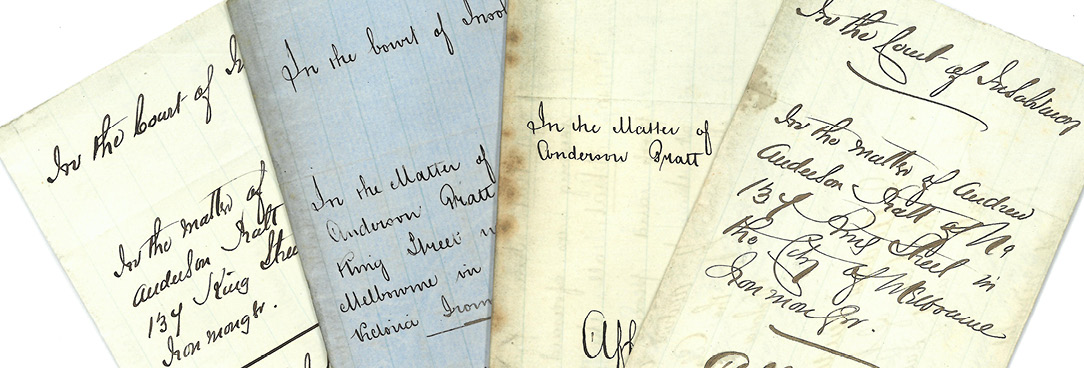 In the Court of In
In the matter of
Anderson Pratt
134 King Stree
Ironmongr.
In the Court of Insol
In the Matter of
Anderson Pratt
King Street
Melbourne in
Victoria Ironm
In the Matter of
Anderson Pratt
Aff
In the Court of Insolvency
In the matter of Andrew
Anderson Pratt of No
134 King Street in
the City of Melbourne
Ironmongr.